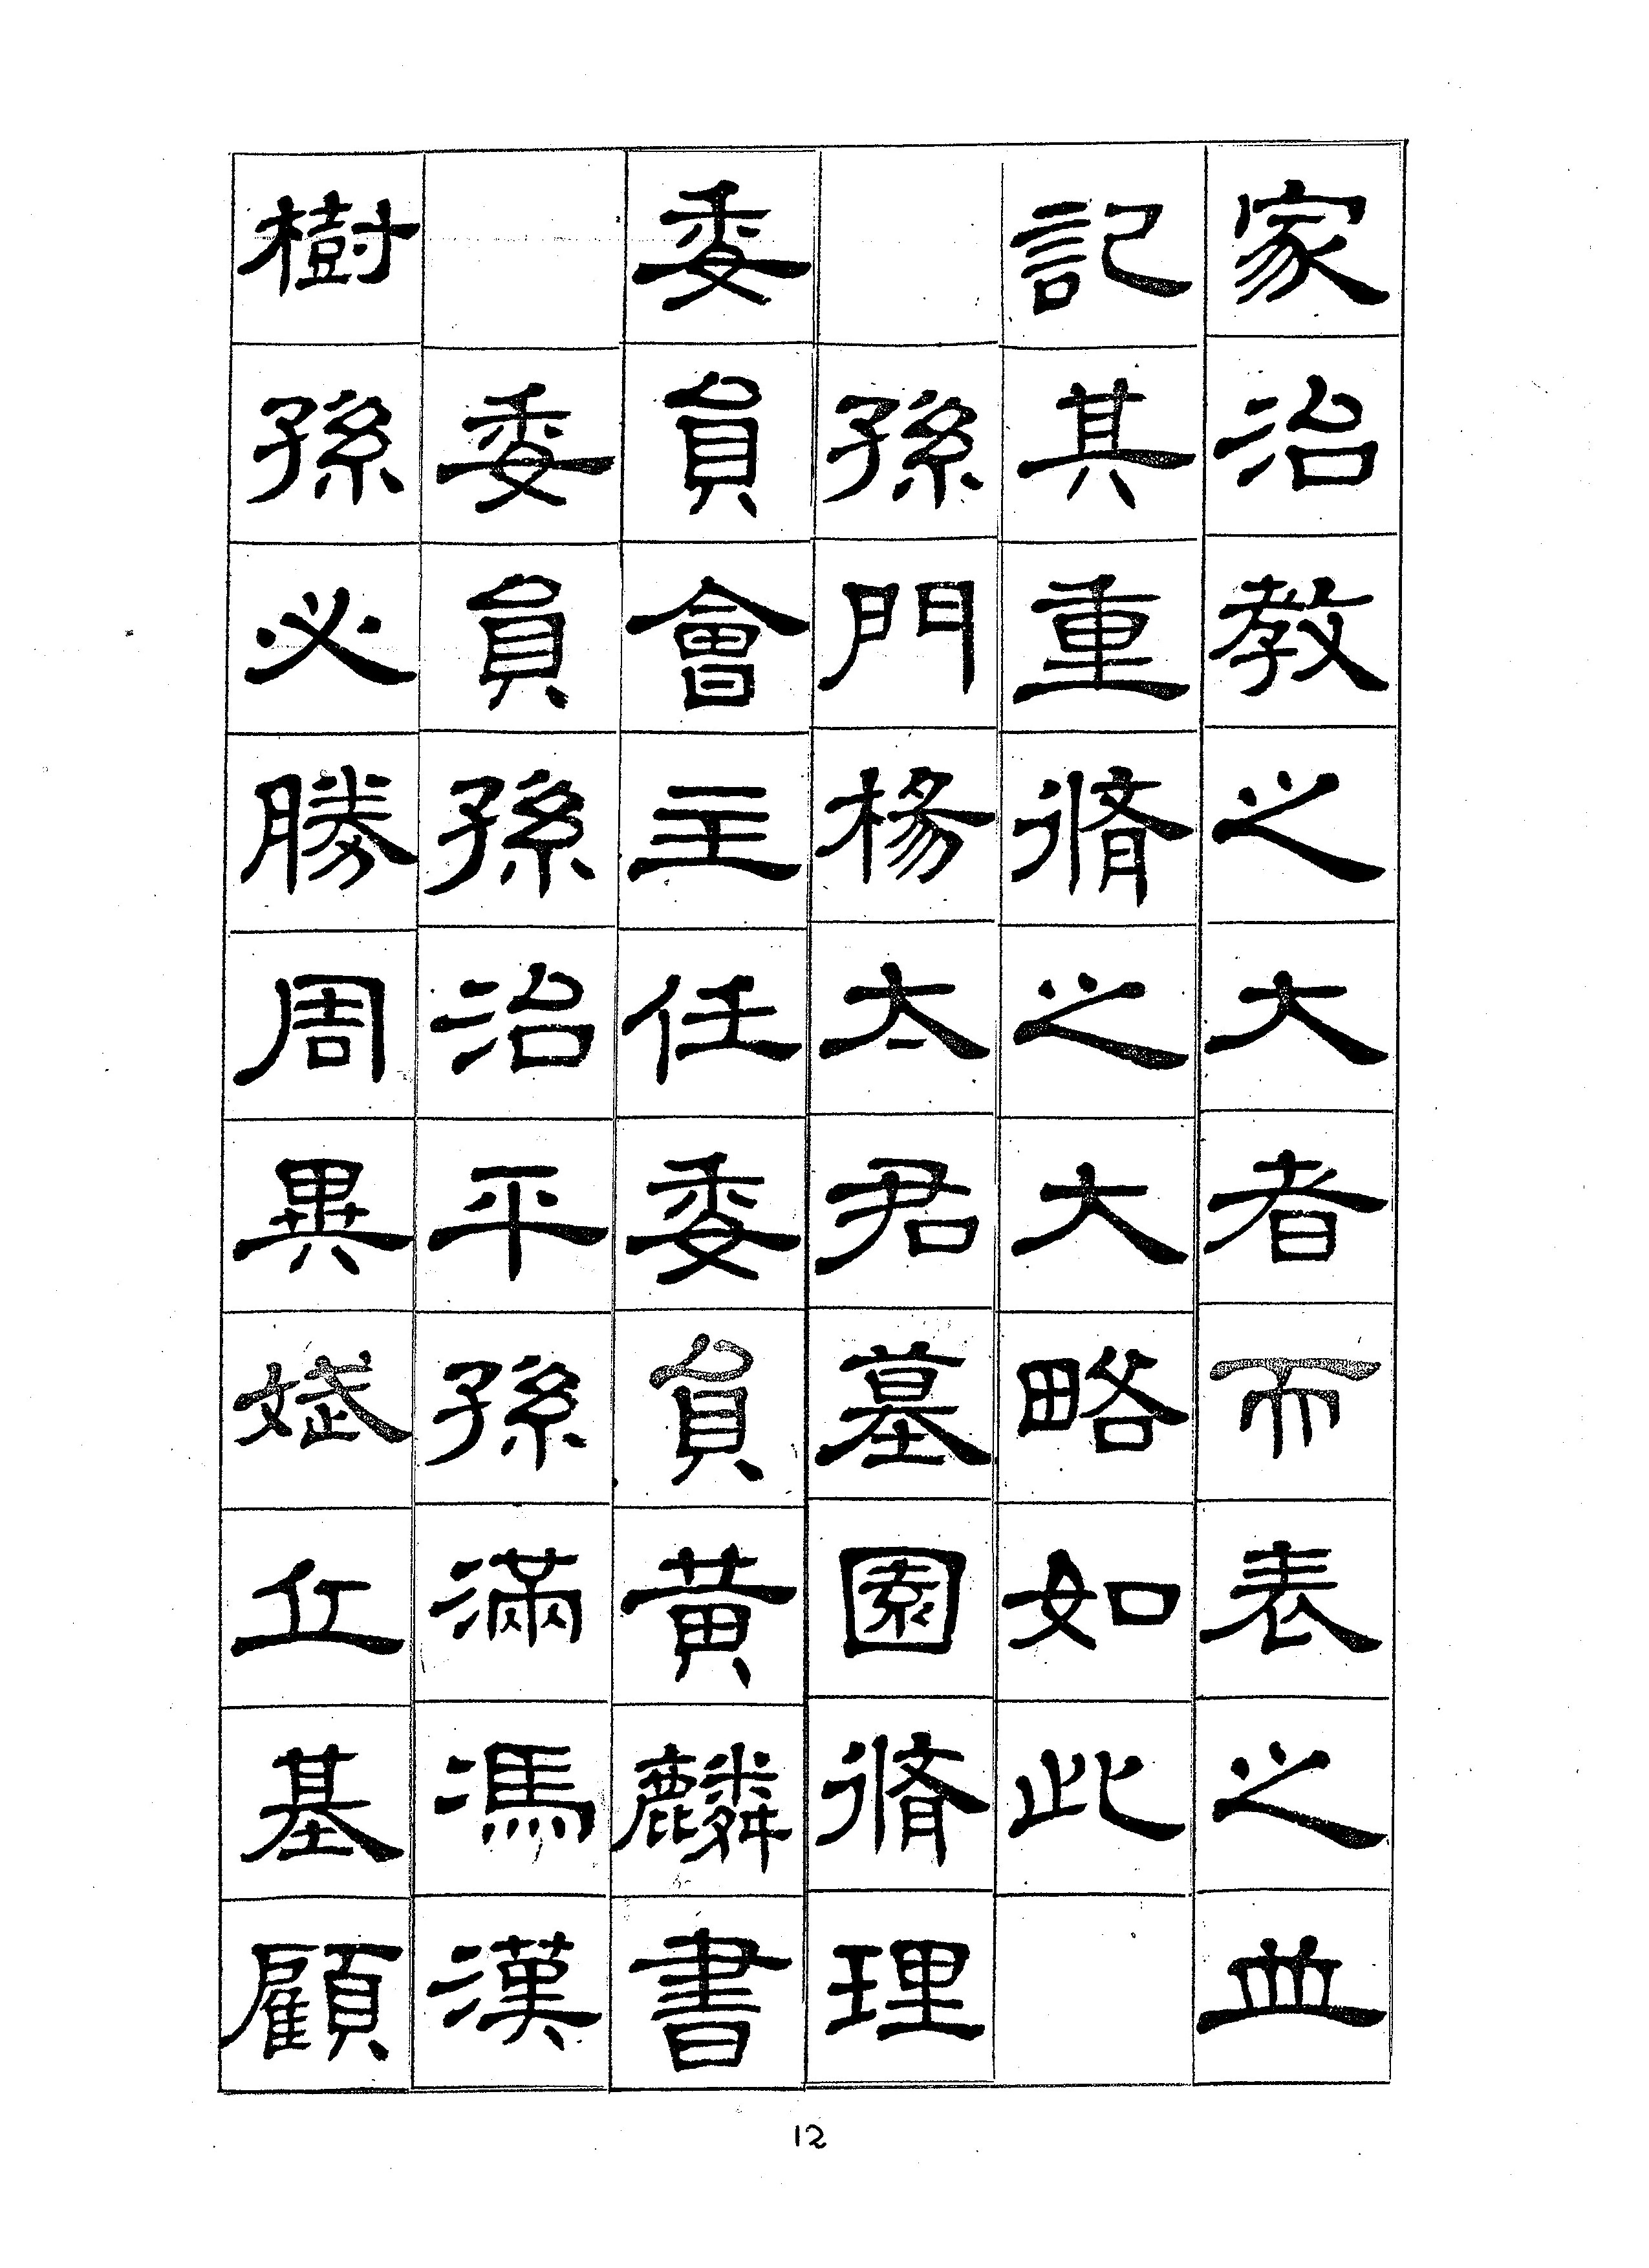 家治教之大者而表之並
記其重脩之大略如此
孫門楊太君墓園脩理
委員會主任委員黃麟書
委員孫治平孫滿馮漢
樹孫必勝周異斌丘基顧
12